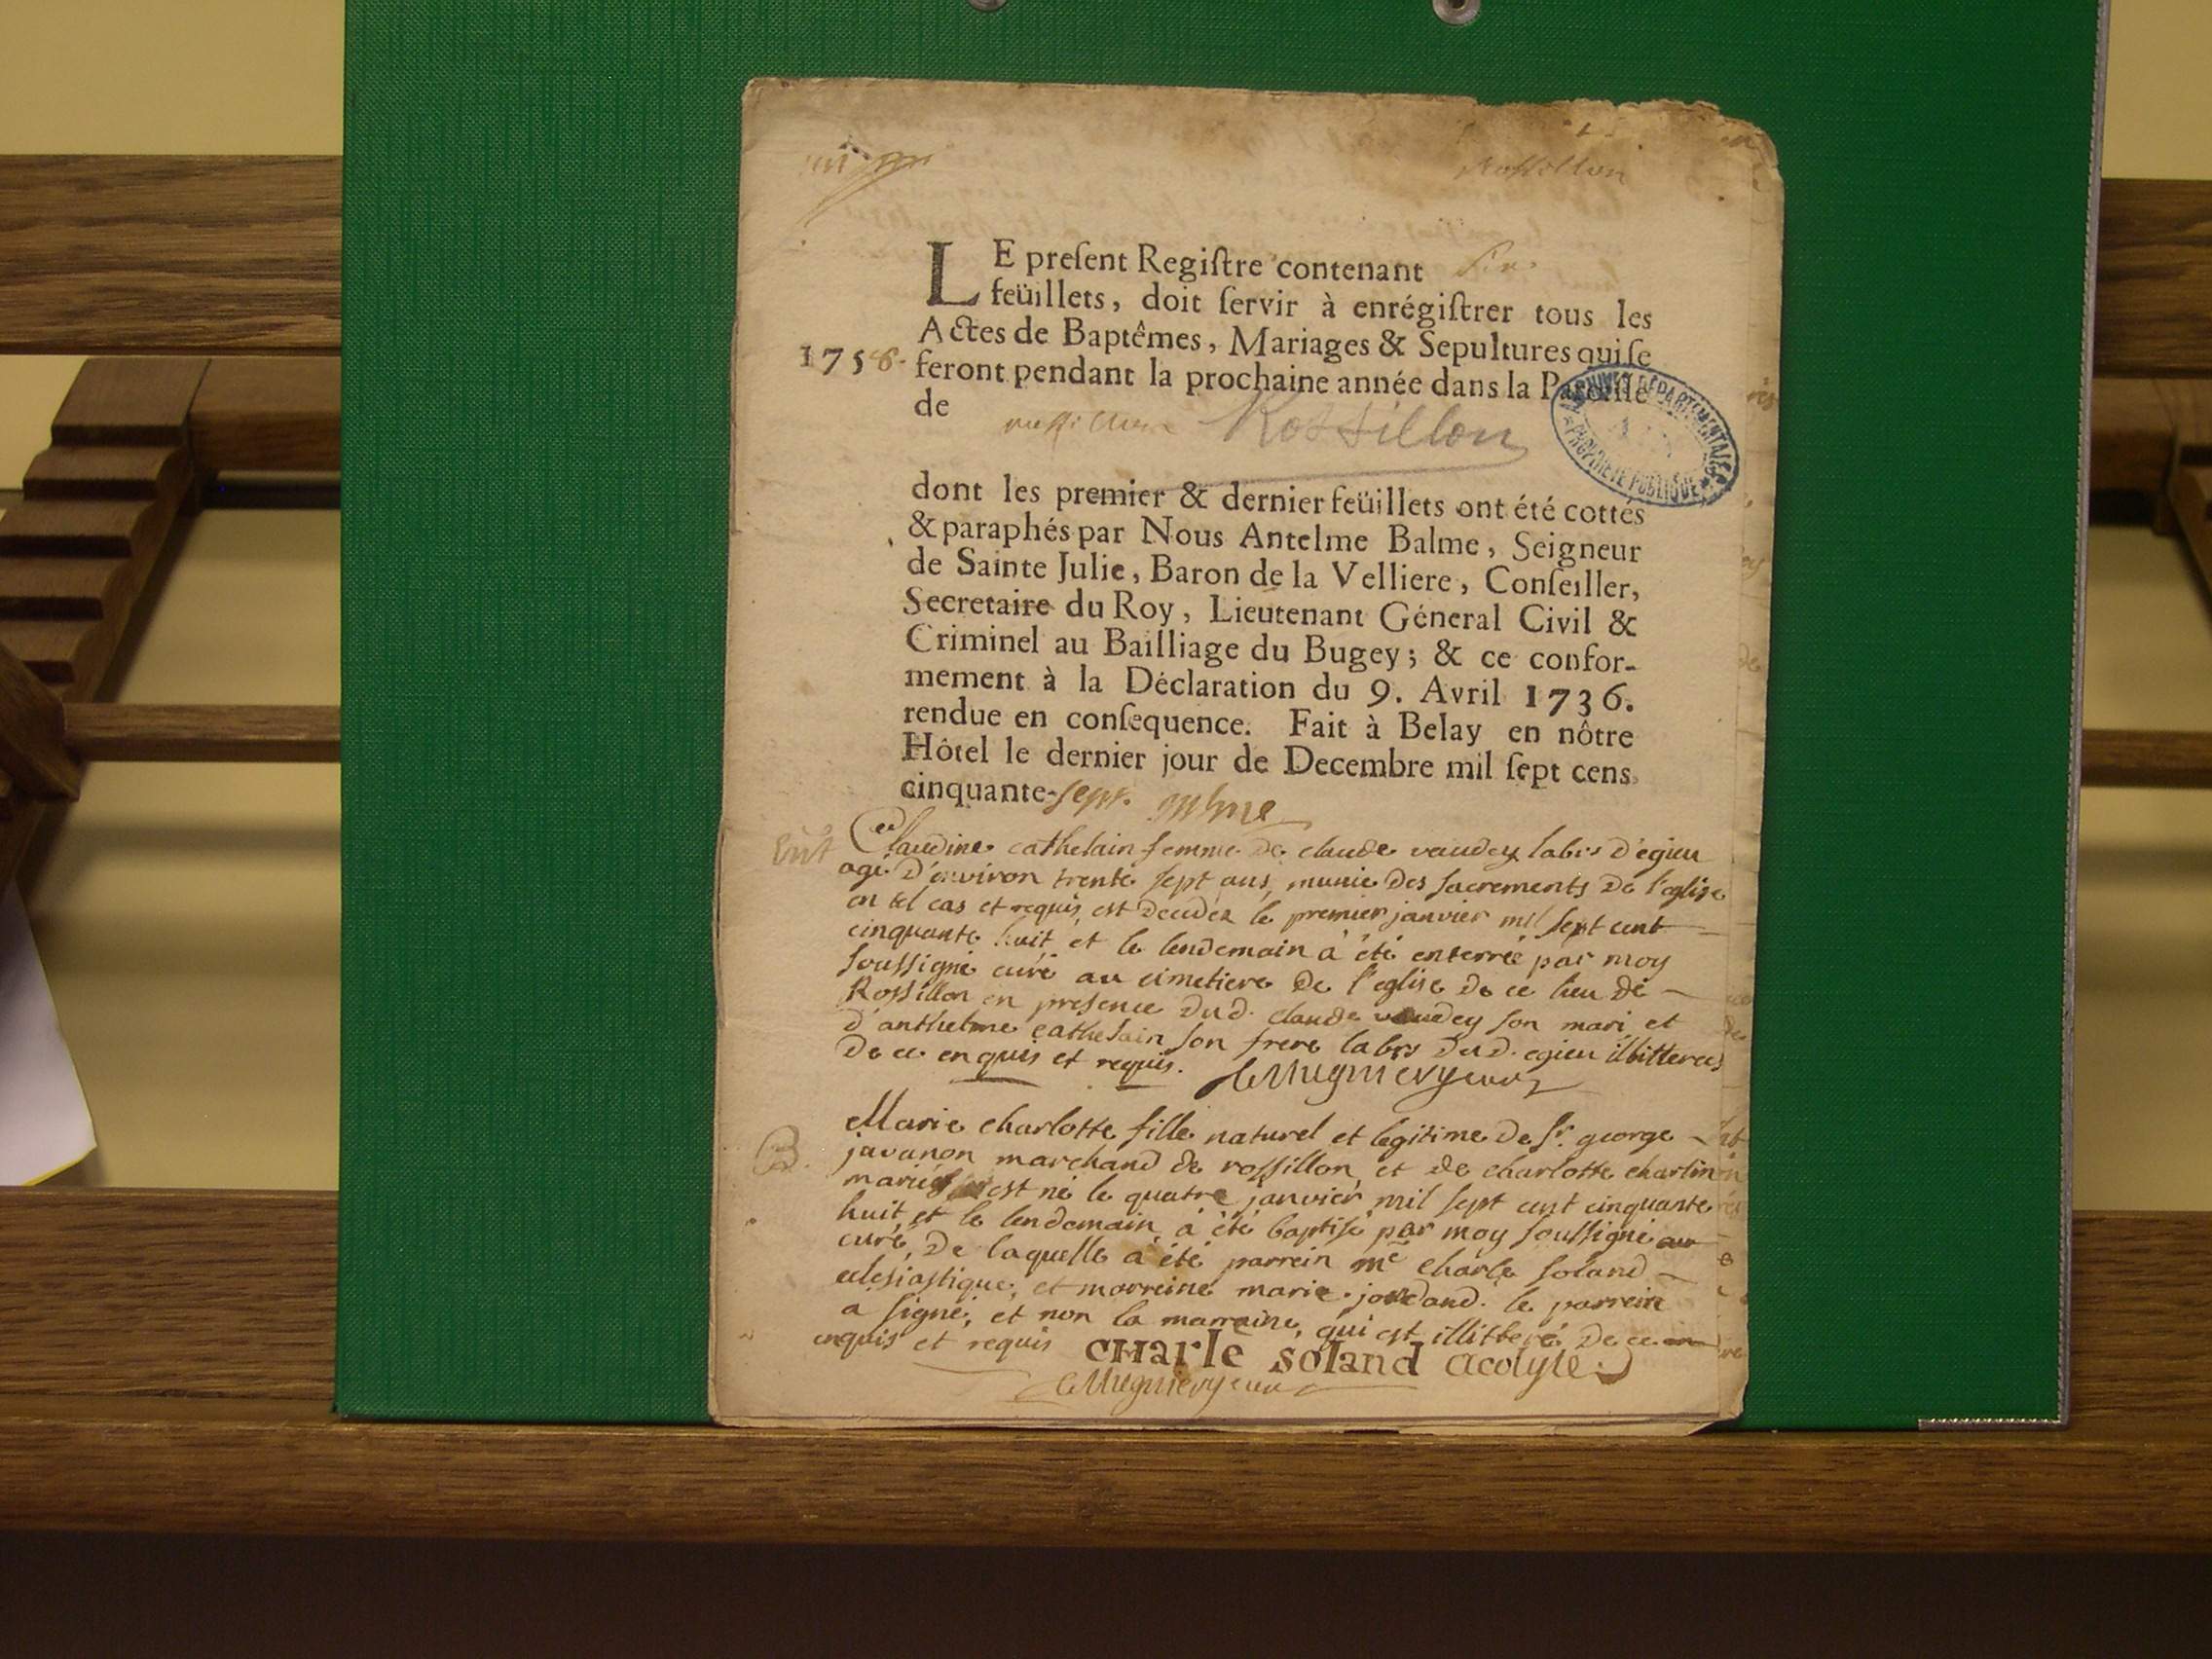 Rossillon
LE preſent Regiſtre contenant six
feüillets, doit ſervir à enrégiſtrer tous les
Actes de Baptêmes, Mariages & Sepultures qui ſe
1758. feront pendant la prochaine année dans la Paroiſſe
de rossillon Rossillon
ARCHIVES DÉPARTEMENTALES
PROPRIÉTÉ PUBLIQUE
dont les premier & dernier feüillets ont été cottés
& paraphés par Nous Antelme Balme, Seigneur
de Sainte Julie, Baron de la Velliere, Conſeiller,
Secretaire du Roy, Lieutenant Géneral Civil &
Criminel au Bailliage du Bugey; & ce confor-
mement à la Déclaration du 9. Avril 1736.
rendue en conſequence. Fait à Belay en nôtre
Hôtel le dernier jour de Decembre mil ſept cens
cinquante-sept. Balme
Ent Claudine cathelain femme de claude vaudey labrs d'egieu
agé d'environ trente sept ans, munie des sacrements de l'eglise
en tel cas et requis, est decedez le premier janvier mil sept cent
cinquante huit, et le lendemain à été enterrée par moy
soussigné curé au cimetiere de l'eglise de ce lieu de
Rossillon en presence dud. claude vaudey son mari et
d'anthelme cathelain son frere labrs dud. egieu illitterés
de ce enquis et requis.
B. Marie charlotte fille naturel et legitime de sr. george
javanon marchand de rossillon, et de charlotte charlin
mariés est né le quatre janvier mil sept cent cinquante
huit, et le lendemain, à été baptisé par moy soussigné
curé, de laquelle à été parrein me charle soland
eclesiastique, et marreine marie jourdand. le parrein
a signé, et non la marraine, qui est illitteré de ce
enquis et requis CHarle soland acolyte.